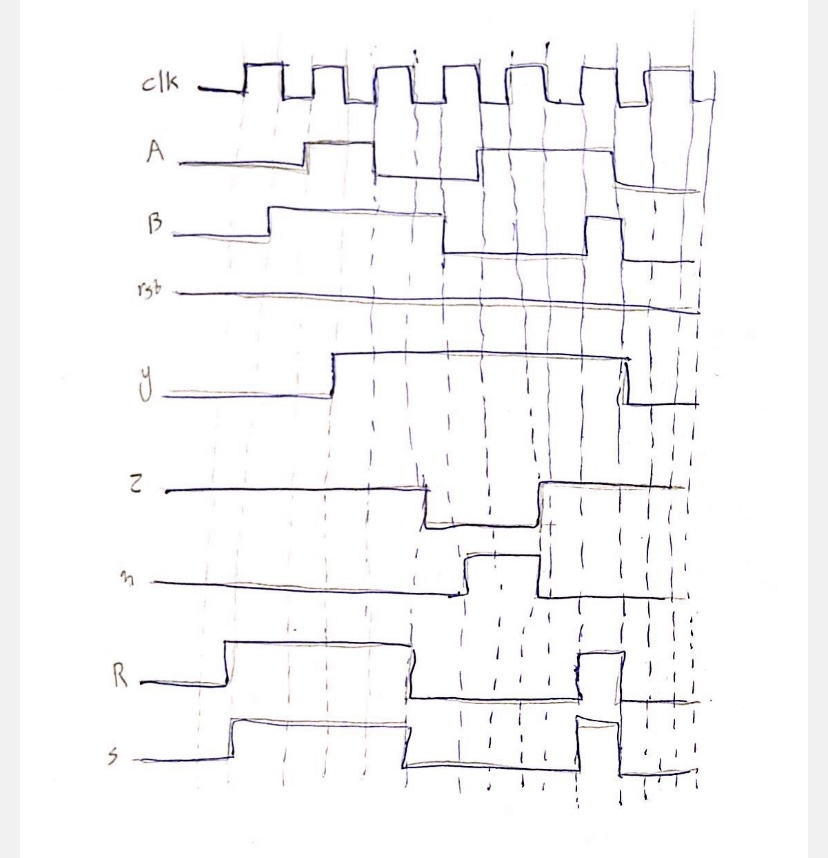 clk
A
B
rst
y
z
n
R
s